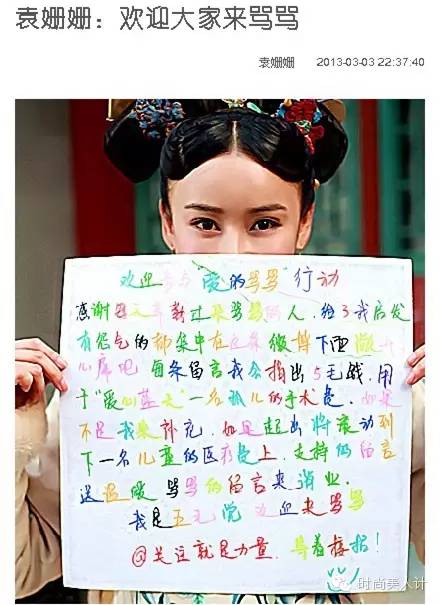 袁姗姗：欢迎大家来骂骂
袁姗姗 2013-03-03 22:37:40
欢迎参与“爱的骂骂”行动
感谢 骂骂的人，给了我启发
有怨气的都集中在这条微博下面
吧 每条留言我会捐出5毛钱，用
于“爱心蓝天”一名孤儿的手术费，如果
不足我来补充，如 超出将滚动到
下一名儿童的医疗费上，支持的留言
送温暖 骂骂的留言来消业．
我是五毛党 欢迎来骂骂
@关注就是力量 等着接招！
时尚美人计